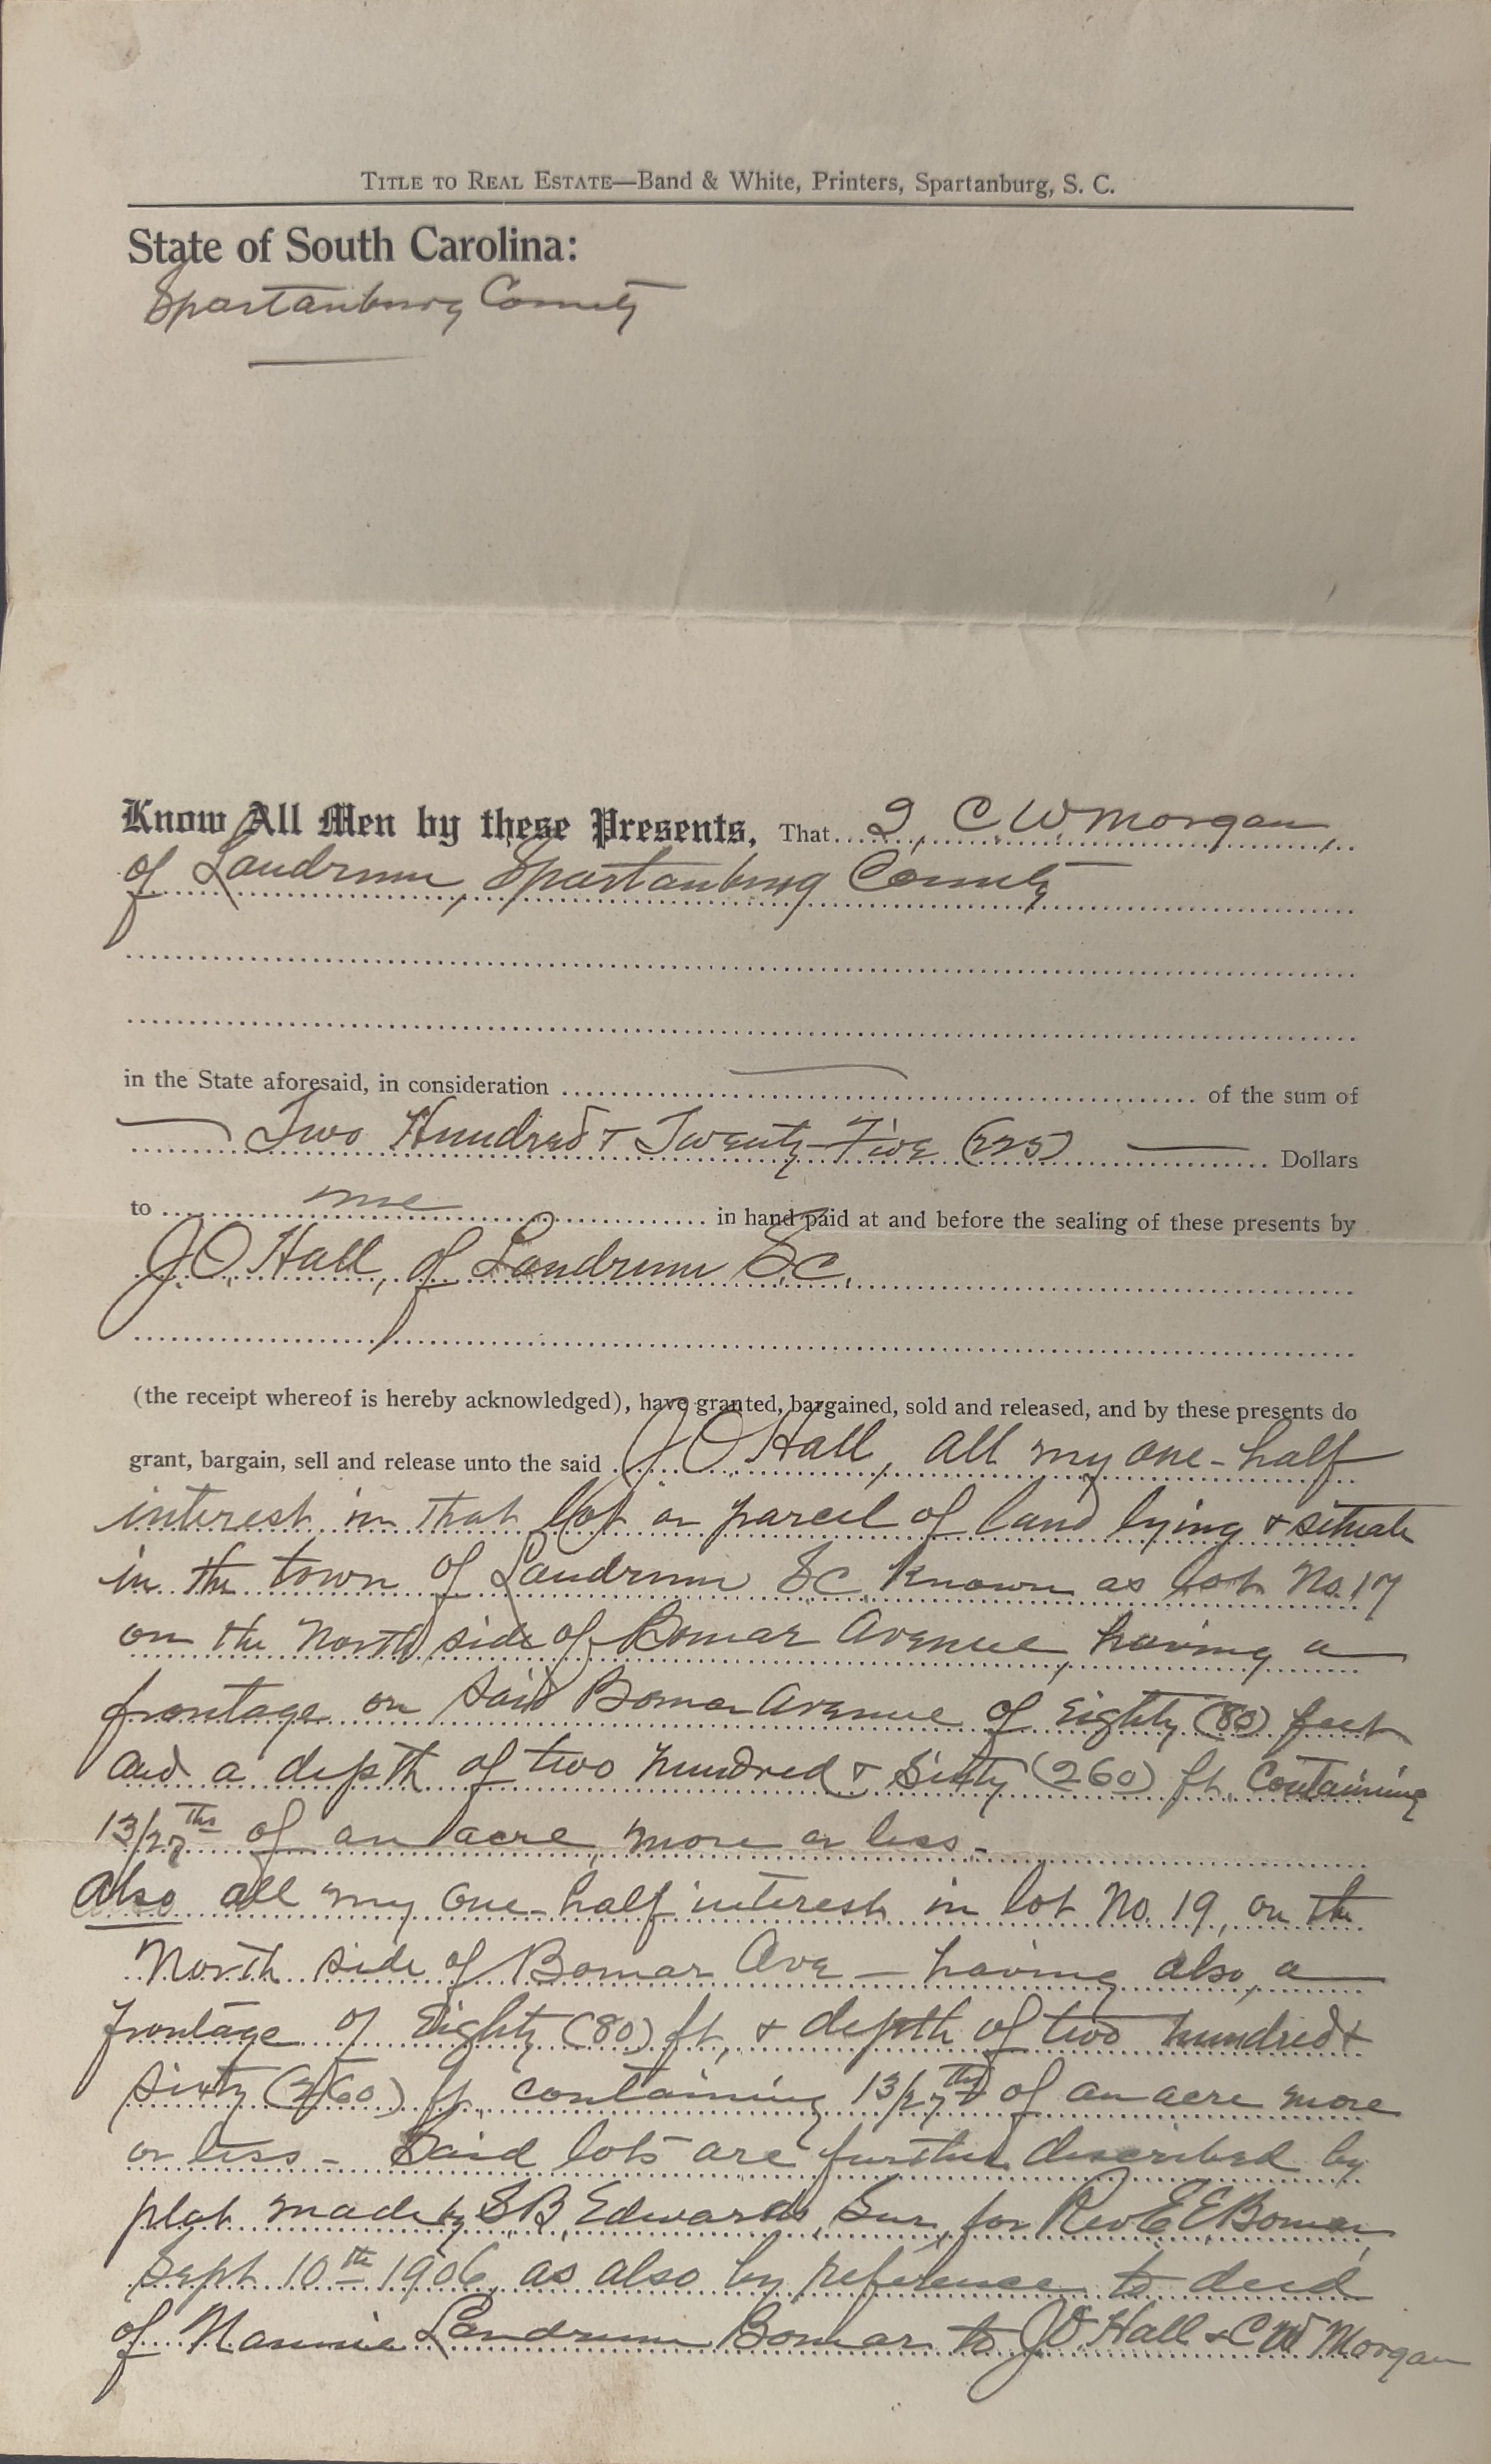 TITLE TO REAL ESTATE—Band & White, Printers, Spartanburg, S. C.
State of South Carolina:
Spartanburg County
Know All Men by these Presents, That I, C W Morgan,
of Landrum, Spartanburg County
in the State aforesaid, in consideration of the sum of
Two Hundred & Twenty-Five (225) Dollars
to me in hand paid at and before the sealing of these presents by
J.O. Hall, of Landrum S.C.
(the receipt whereof is hereby acknowledged), have granted, bargained, sold and released, and by these presents do
grant, bargain, sell and release unto the said J.O. Hall, all my one-half
interest in that lot or parcel of land lying & situate
in the town of Landrum S.C. known as lot No. 17
on the North side of Bomar Avenue, having a
frontage on said Bomar Avenue of Eighty (80) feet
and a depth of two hundred & sixty (260) ft. Containing
13/27ths of an acre, more or less-
Also all my one-half interest in lot No. 19, on the
North side of Bomar Ave - having also, a
frontage of Eighty (80) ft, & depth of two hundred &
sixty (260) ft. containing 13/27ths of an acre more
or less - Said lots are further described by
plat made by S.B. Edwards, Sur, for Rev E E Bomar,
Sept. 10th 1906, as also by reference to deed
of Nannie Landrum Bomar to J.O. Hall & C W Morgan